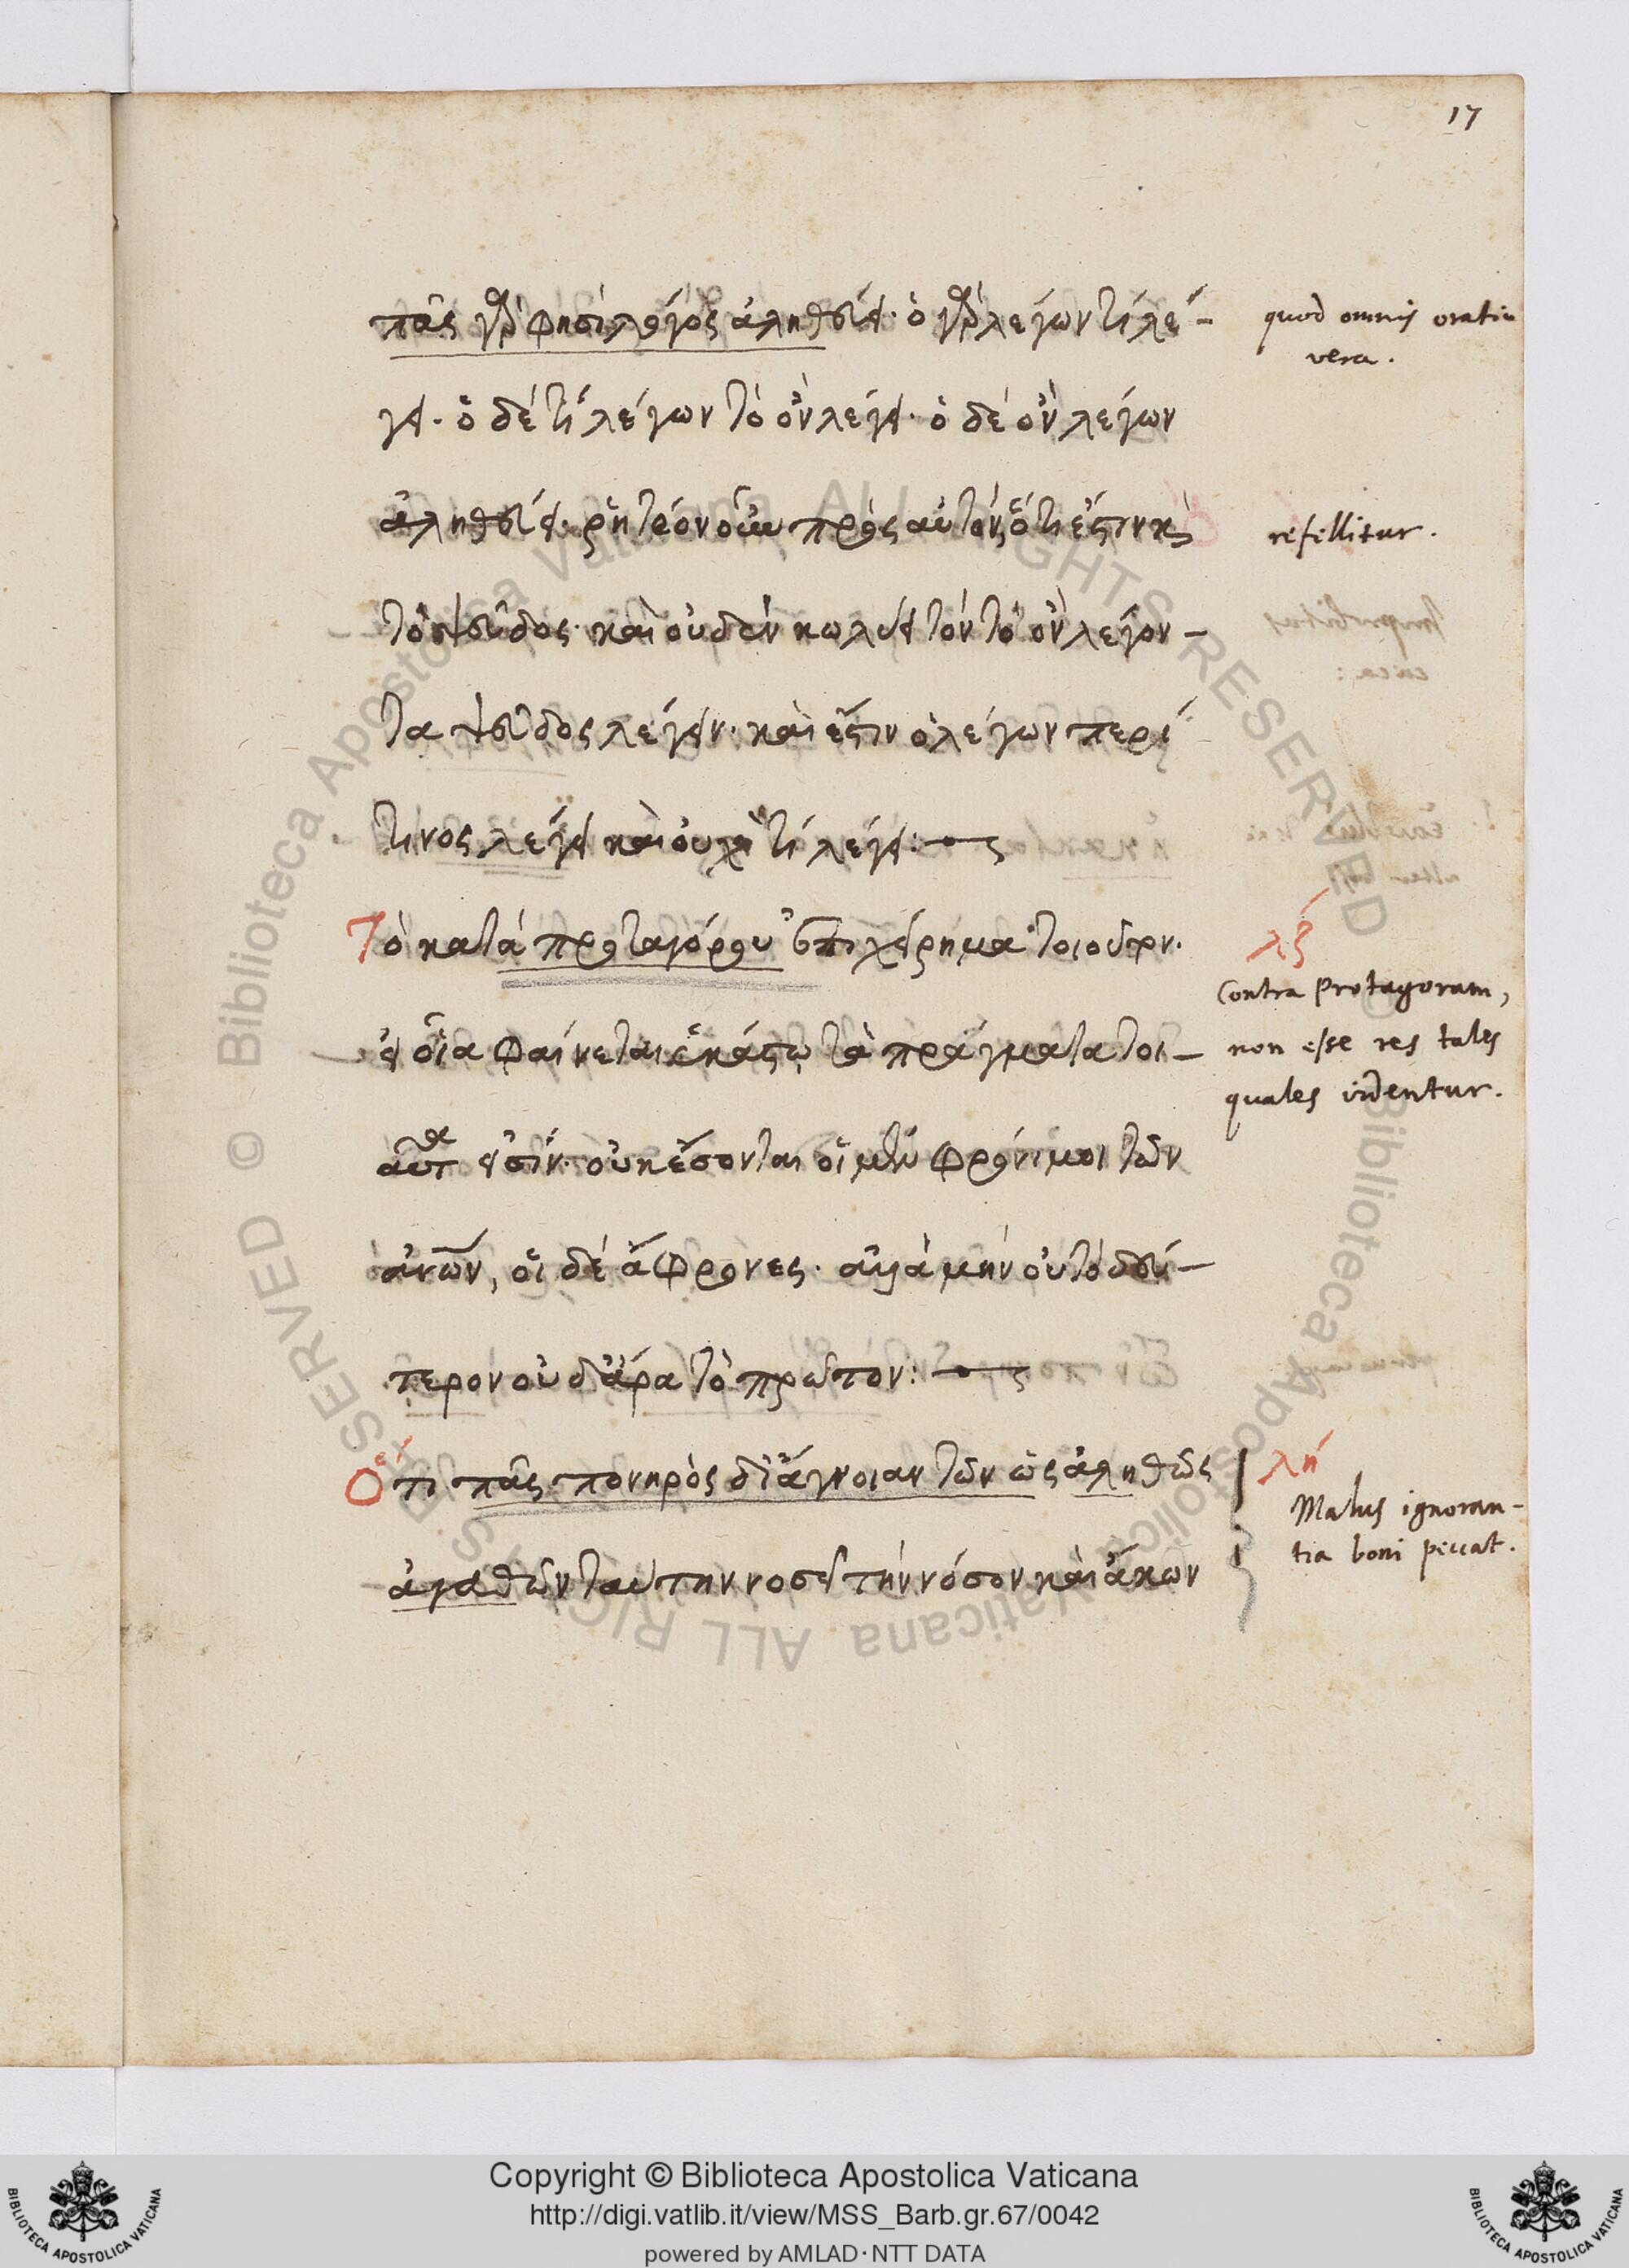 17
πᾶς γὰρ φησὶ λόγος ἀληθεύει· ὁ γὰρ λέγων τί λέ-
quod omnis oratio
vera.
γει· ὁ δέ τὶ λέγων τὸ ὂν λέγει· ὁ δὲ ὂν λέγων
ἀληθεύει· ῥητέον οὖν πρὸς αὐτὸν ὅτι ἔστιν κὶ
refellitur.
τὸ ψεῦδος· καὶ οὐδὲν κωλύει τὸν τὸ ὂν λέγον-
τα ψεῦδος λέγειν· καὶ ἔστιν ὁ λέγων περί
τινος λέγει καὶ οὐχὶ τὶ λέγει:
Τὸ κατὰ πρωταγόρου ἐπιχείρημα τοιοῦτον·
λζ
Contra Protagoram,
εἰ οἷα φαίνεται ἑκάστῳ τὰ πράγματα τοι-
non esse res tales
quales videntur.
αῦτα εἰσίν· οὐκ ἔσονται οἱ μὲν φρόνιμοι τῶν
ἀνῶν, οἱ δὲ ἄφρονες· ἀλλὰ μὴν οὐ τὸ δεύ-
τερον οὐδ' ἄρα τὸ πρῶτον:
Ὅτι πᾶς πονηρὸς δι' ἄγνοιαν τῶν ὡς ἀληθῶς
λή
Malus ignoran-
tia boni peccat.
ἀγαθῶν ταύτην νοσεῖ τὴν νόσον καὶ ἄκων
© Biblioteca Apostolica Vaticana ALL RIGHTS RESERVED
© Biblioteca Apostolica Vaticana ALL RIGHTS RESERVED
Copyright © Biblioteca Apostolica Vaticana
http://digi.vatlib.it/view/MSS_Barb.gr.67/0042
powered by AMLAD·NTT DATA
BIBLIOTECA APOSTOLICA VATICANA
BIBLIOTECA APOSTOLICA VATICANA